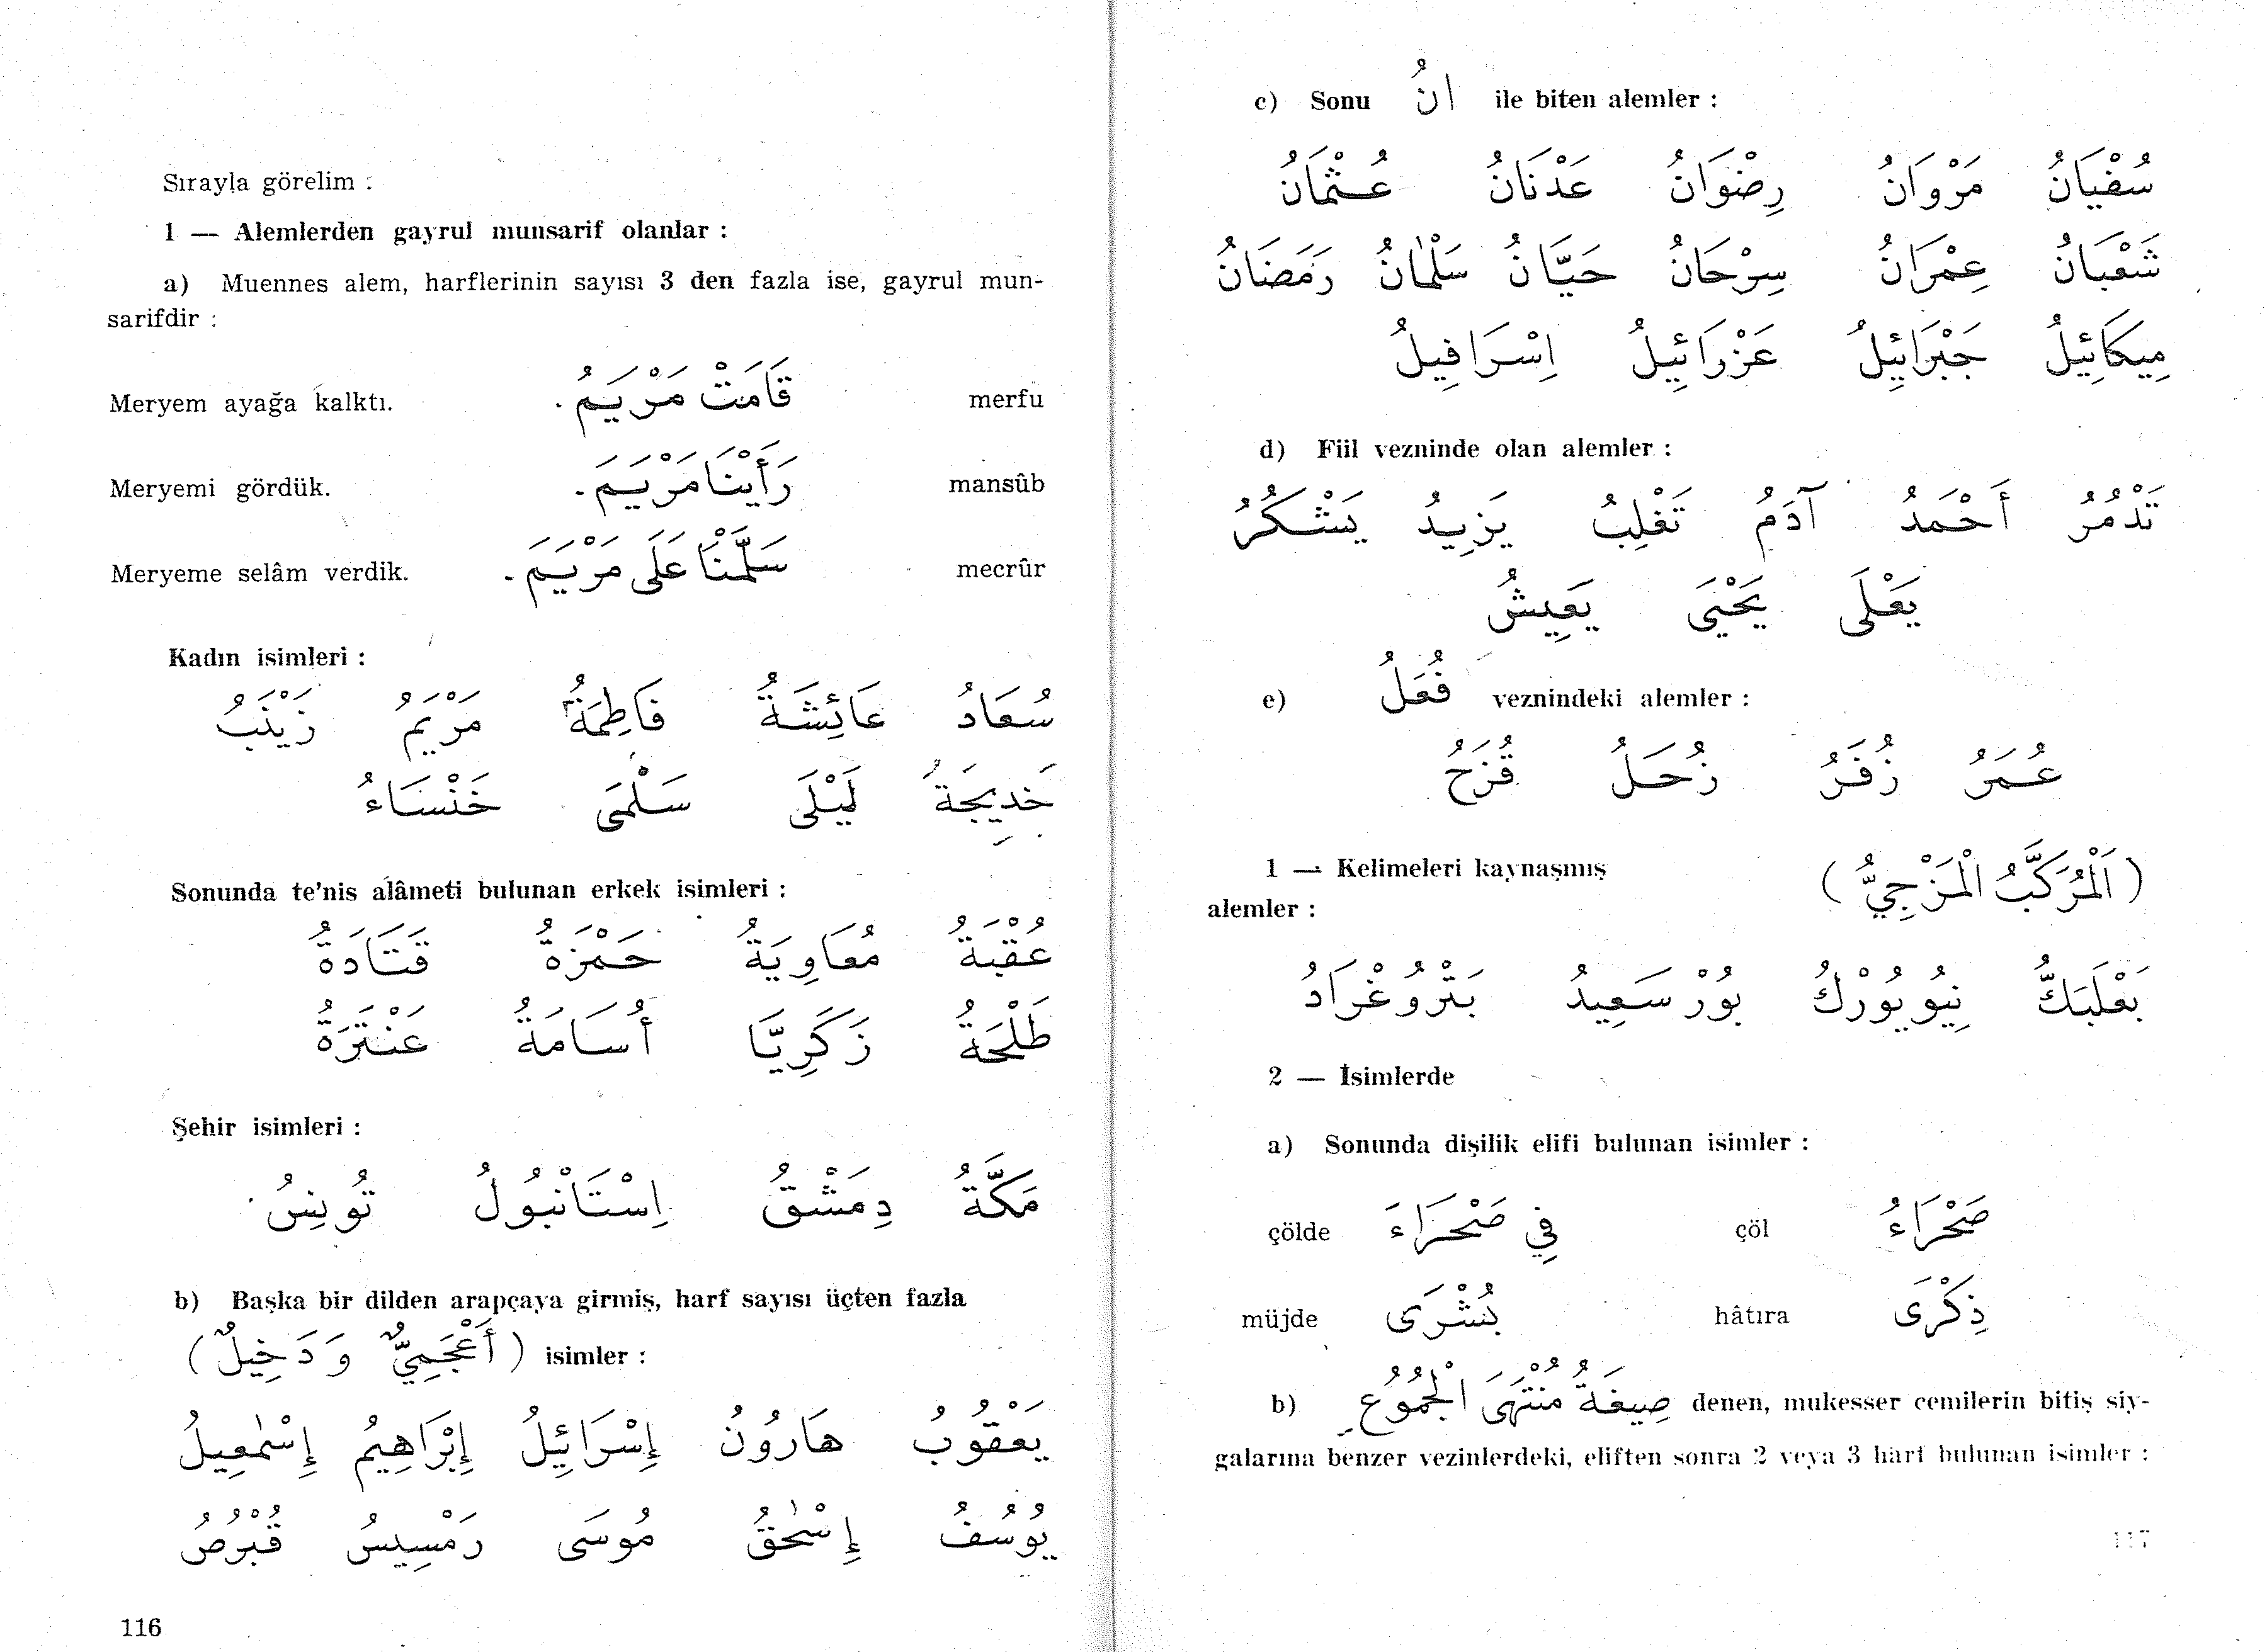 Sırayla görelim :
1 — Alemlerden gayrul munsarif olanlar :
a) Muennes alem, harflerinin sayısı 3 den fazla ise, gayrul mun-
sarifdir :
Meryem ayağa kalktı. قَامَتْ مَرْيَمُ. merfu
Meryemi gördük. رَأَيْنَا مَرْيَمَ. mansûb
Meryeme selâm verdik. سَلَّمْنَا عَلَى مَرْيَمَ. mecrûr
Kadın isimleri :
سُعَادُ عَائِشَةُ فَاطِمَةُ مَرْيَمُ زَيْنَبُ
خَدِيجَةُ لَيْلَى سَلْمَى خَنْسَاءُ
Sonunda te'nis alâmeti bulunan erkek isimleri :
عُقْبَةُ مُعَاوِيَةُ حَمْزَةُ قَتَادَةُ
طَلْحَةُ زَكَرِيَّا أُسَامَةُ عَنْتَرَةُ
Şehir isimleri :
مَكَّةُ دِمَشْقُ اِسْتَانْبُولُ تُونِسُ
b) Başka bir dilden arapçaya girmiş, harf sayısı üçten fazla
(أَعْجَمِيٌّ وَدَخِيلٌ) isimler :
يَعْقُوبُ هَارُونُ إِسْرَائِيلُ إِبْرَاهِيمُ إِسْمٰعِيلُ
يُوسُفُ إِسْحٰقُ مُوسَى رَمْسِيسُ قُبْرُصُ
116
c) Sonu انُ ile biten alemler :
سُفْيَانُ مَرْوَانُ رِضْوَانُ عَدْنَانُ عُثْمَانُ
شَعْبَانُ عِمْرَانُ سِرْحَانُ حَيَّانُ سَلْمَانُ رَمَضَانُ
مِيكَائِيلُ جَبْرَائِيلُ عَزْرَائِيلُ اِسْرَافِيلُ
d) Fiil vezninde olan alemler :
تَدْمُرُ أَحْمَدُ آدَمُ تَغْلِبُ يَزِيدُ يَشْكُرُ
يَعْلَى يَحْيَى يَعِيشُ
e) فُعَلُ veznindeki alemler :
عُمَرُ زُفَرُ زُحَلُ قُزَحُ
1 — Kelimeleri kaynaşmış (اَلْمُرَكَّبُ الْمَزْجِيُّ)
alemler :
بَعْلَبَكُّ نِيُويُورْكُ بُورْ سَعِيدُ بَتْرُوغْرَادُ
2 — İsimlerde
a) Sonunda dişilik elifi bulunan isimler :
çölde فِي صَحْرَاءَ çöl صَحْرَاءُ
müjde بُشْرَى hâtıra ذِكْرَى
b) صِيغَةُ مُنْتَهَى الْجُمُوعِ denen, mukesser cemilerin bitiş siy-
galarına benzer vezinlerdeki, eliften sonra 2 veya 3 harf bulunan isimler :
117